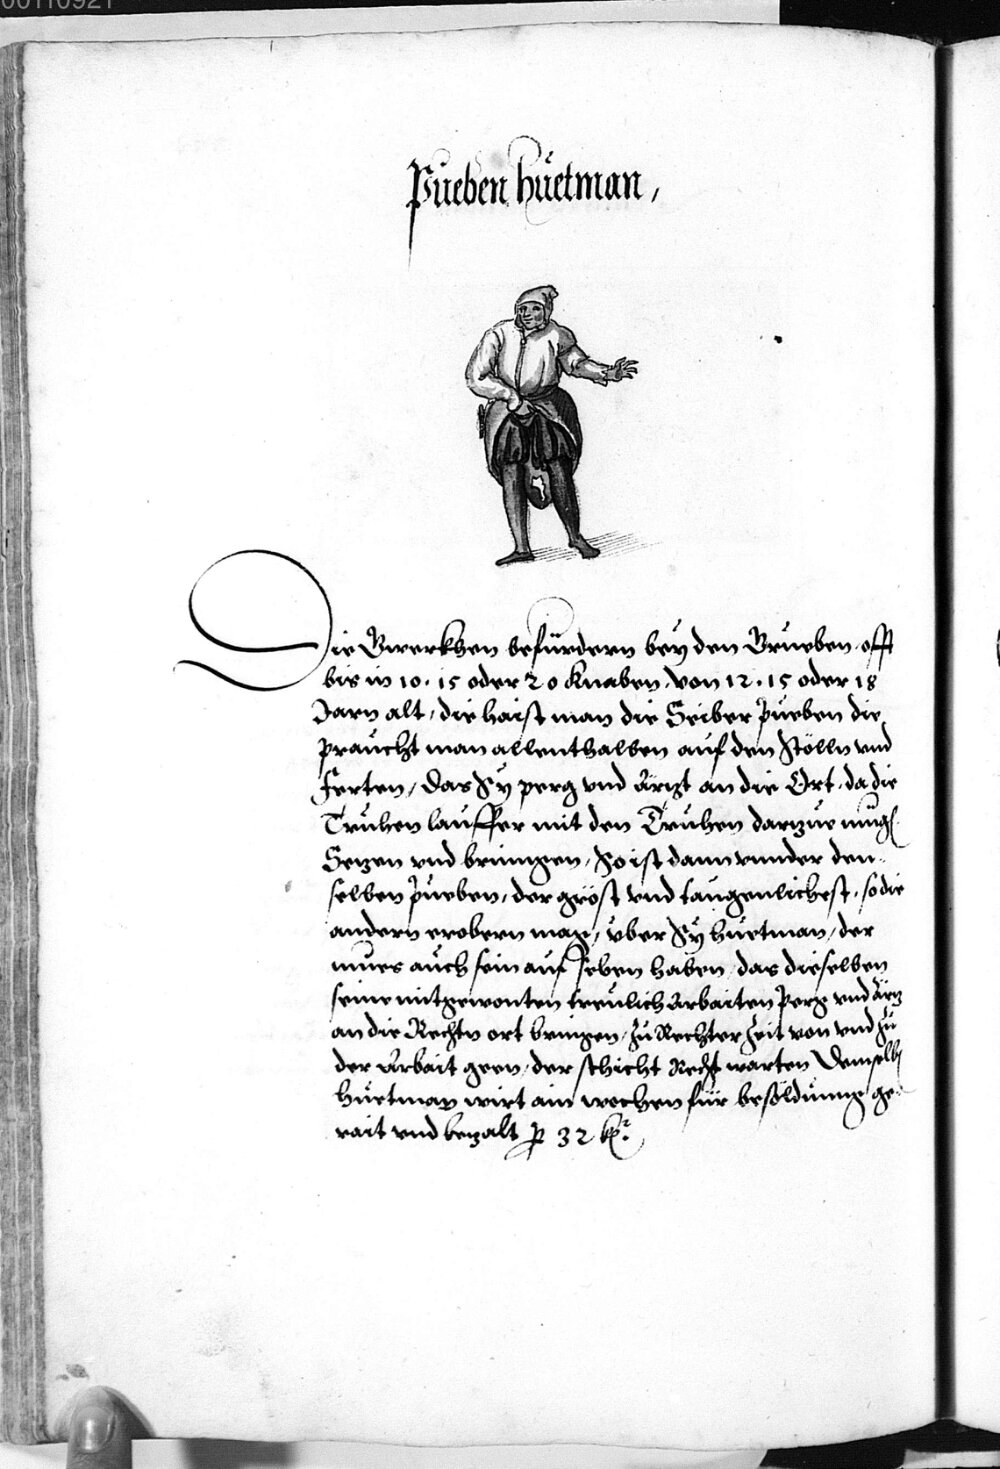 00110921
Pueben huetman,
Die Gwerkhen befürdern bey den Grueben, offt
bis in 10. 15 oder 20 Knaben, von 12. 15 oder 18
Jarn alt, die haist man die Seiber Pueben die
praucht man allenthalben auf den Stölln vnd
Ferten, das Sy perg vnd Ärtzt an die Ort, da die
Truhen lauffer mit den Truhen darzue mügen
Setzen vnd bringen, So ist dann vnnder den-
selben Pueben, der gröst vnd taugenlichest, so die
andern erobern mag, vber Sy huetman, der
mues auch sein auf sehen haben, das dieselben
seine mitgewonten treulich Arbaiten Perg vnd Ärtz
an die Rechtn ort bringen, zu Rechter Zeit von vnd zu
der Arbait geen, der schicht Recht warten Demselben
huetman wirt ain wochen für besöldung ge-
rait vnd betzalt P 32 kr.